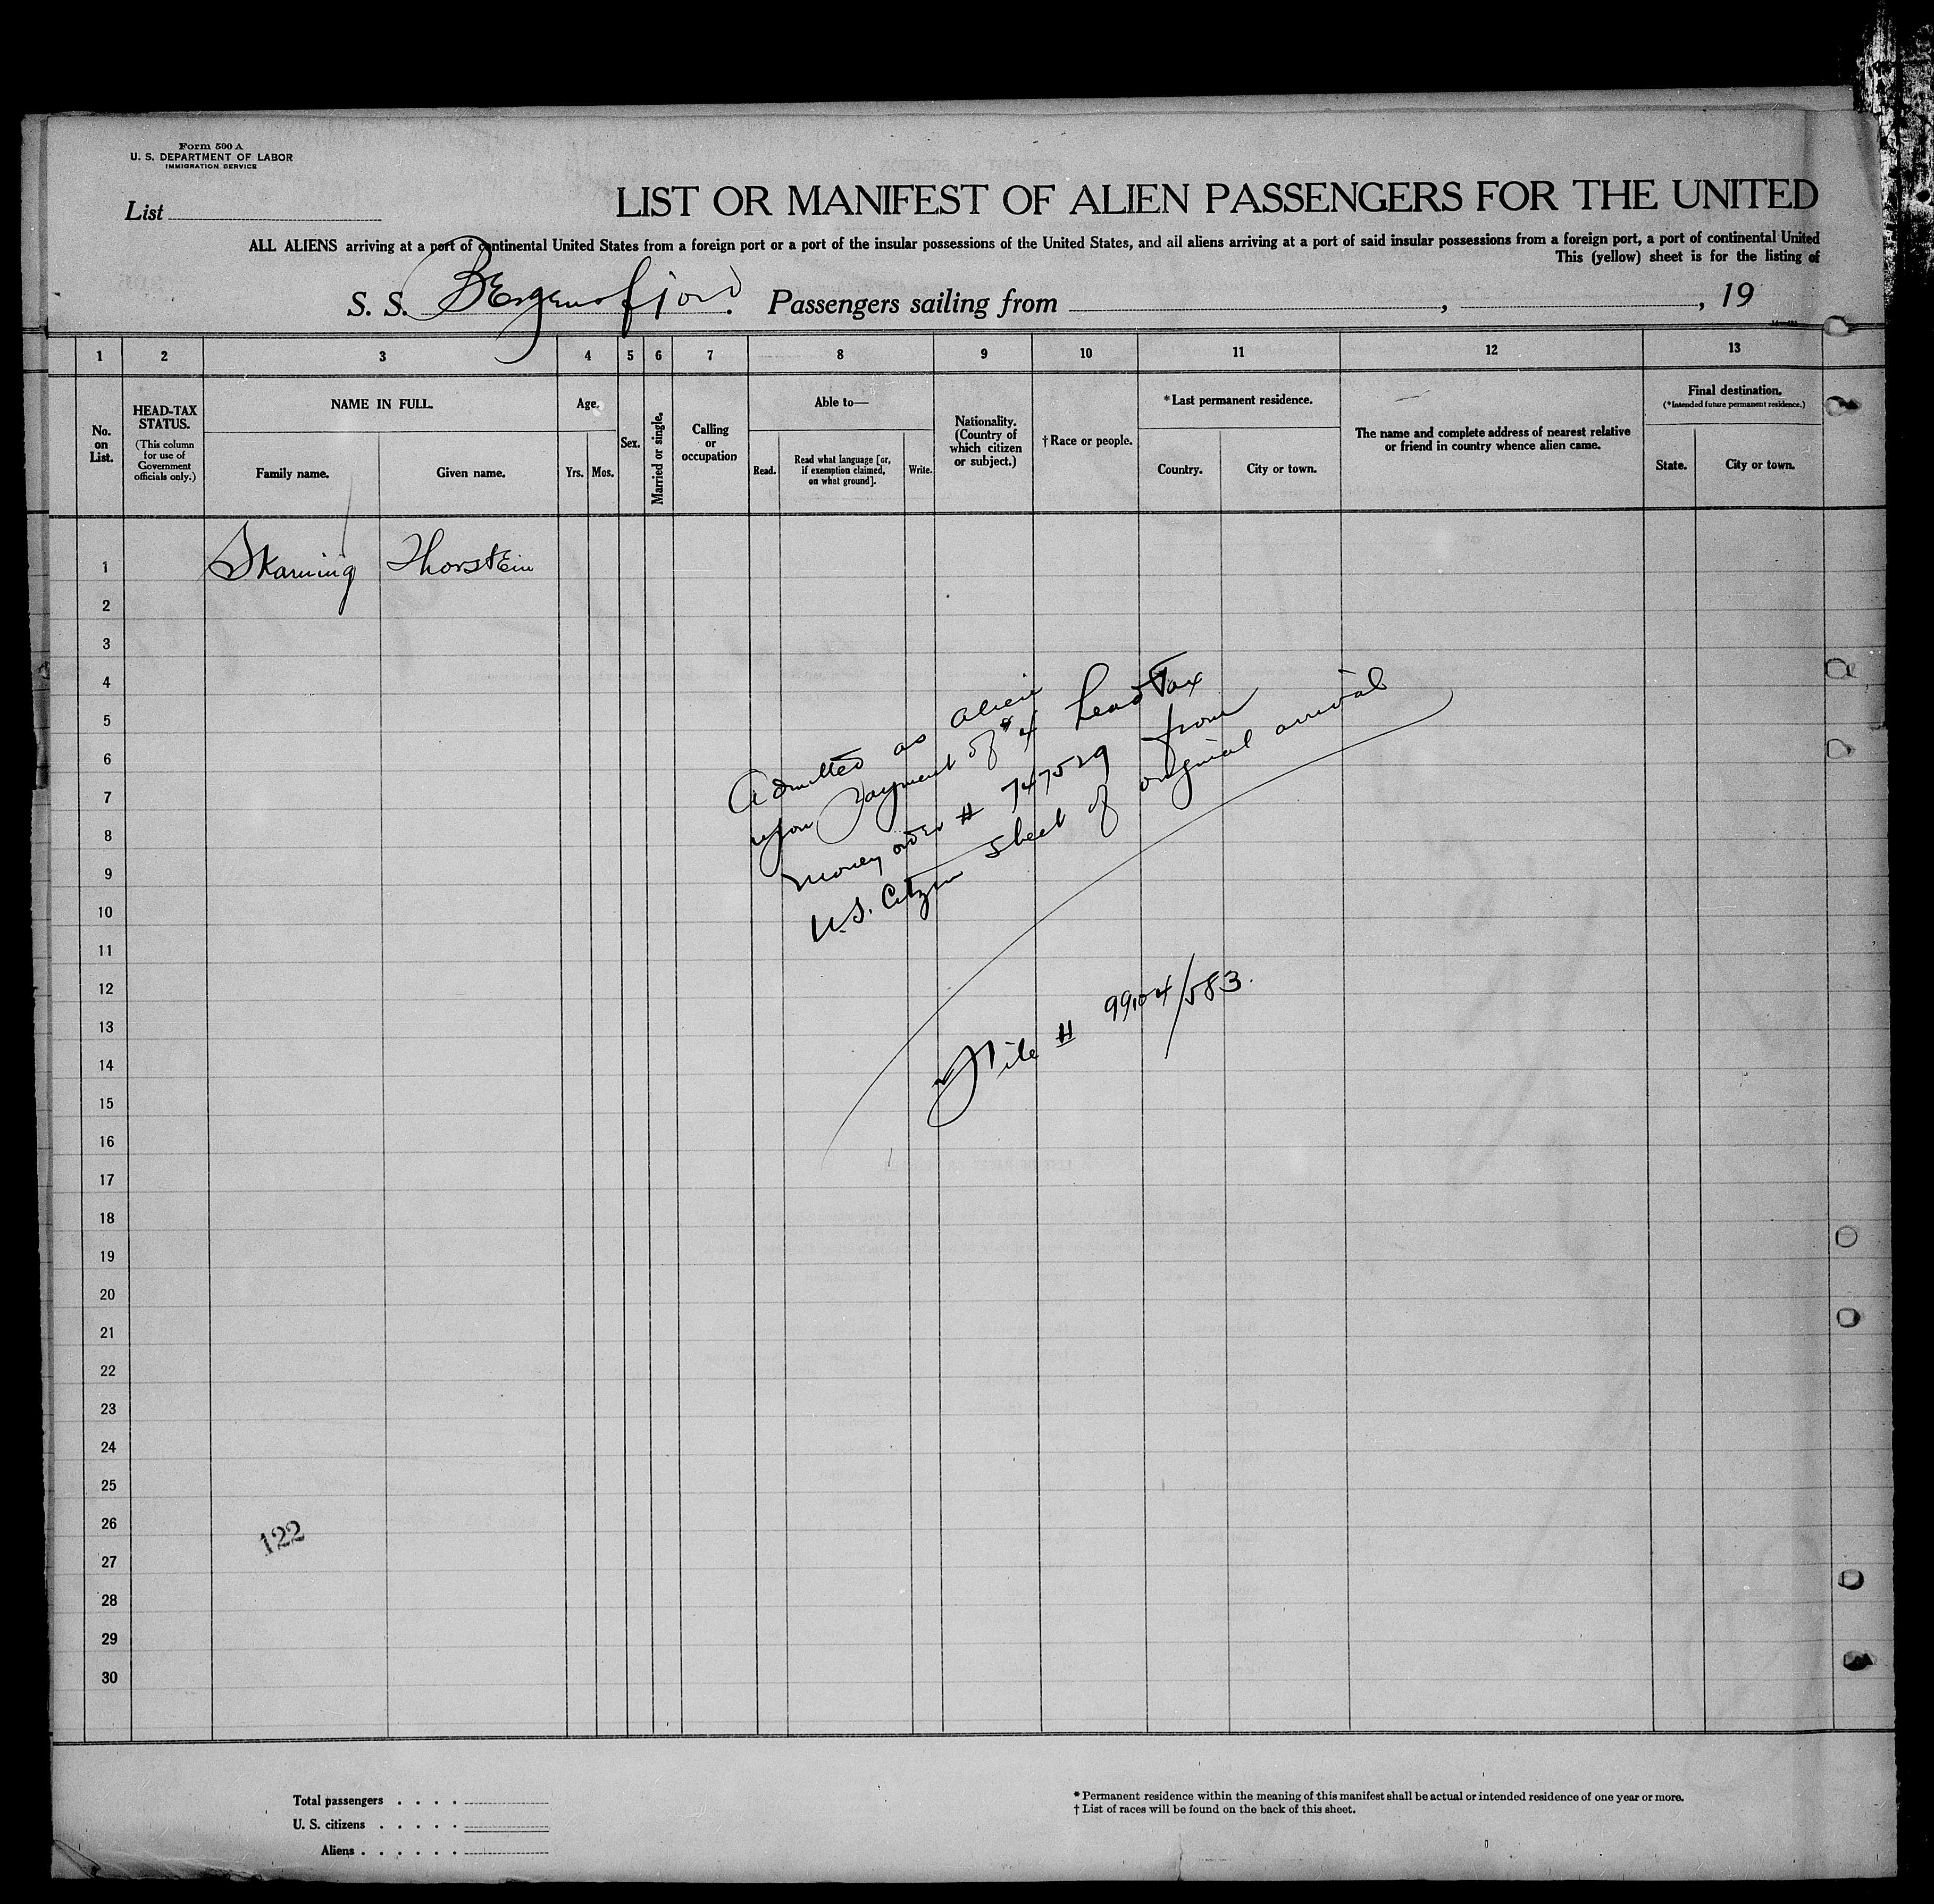 Form 500 A
U. S. DEPARTMENT OF LABOR
IMMIGRATION SERVICE
List
LIST OR MANIFEST OF ALIEN PASSENGERS FOR THE UNITED
ALL ALIENS arriving at a port of continental United States from a foreign port or a port of the insular possessions of the United States, and all aliens arriving at a port of said insular possessions from a foreign port, a port of continental United
This (yellow) sheet is for the listing of
S. S. Bergensfjord. Passengers sailing from , , 19
1 2 3 4 5 6 7 8 9 10 11 12 13
No. on List.
HEAD-TAX STATUS.
(This column for use of Government officials only.)
NAME IN FULL.
Family name.
Given name.
Age.
Yrs.
Mos.
Sex.
Married or single.
Calling or occupation
Able to—
Read.
Read what language [or, if exemption claimed, on what ground].
Write.
Nationality. (Country of which citizen or subject.)
† Race or people.
* Last permanent residence.
Country.
City or town.
The name and complete address of nearest relative or friend in country whence alien came.
Final destination.
(* Intended future permanent residence.)
State.
City or town.
1 Skarning Thorstein
2
3
4
5
6
7
8
9
10
11
12
13
14
15
16
17
18
19
20
21
22
23
24
25
26
27
28
29
30
Admitted as alien
upon payment of $4 head tax
money order # 747529 from
U.S. Citzen sheet of original arrival
File # 99104/583.
122
Total passengers . . . .
U. S. citizens . . . . .
Aliens . . . . . .
* Permanent residence within the meaning of this manifest shall be actual or intended residence of one year or more.
† List of races will be found on the back of this sheet.